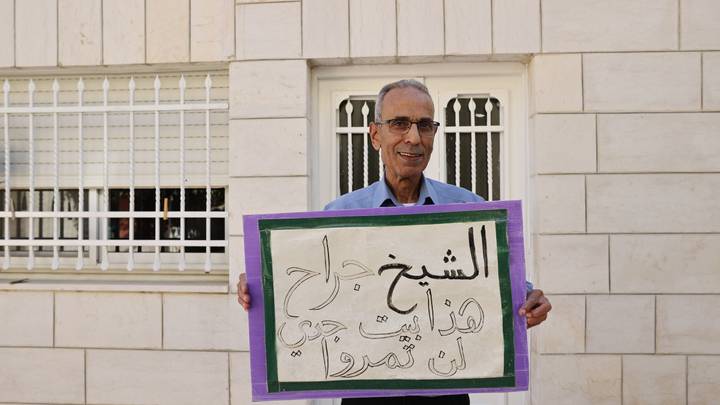 الشيخ جراح
هذا بيت جدي
لن تمروا